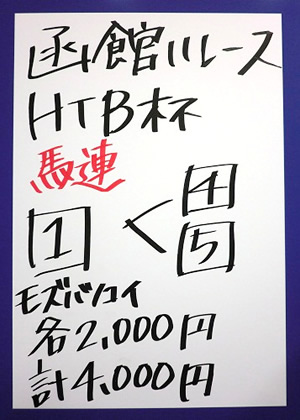 函館11レース
HTB杯
馬連
1 < 4
5
モズバンコイ
各2,000円
計4,000円